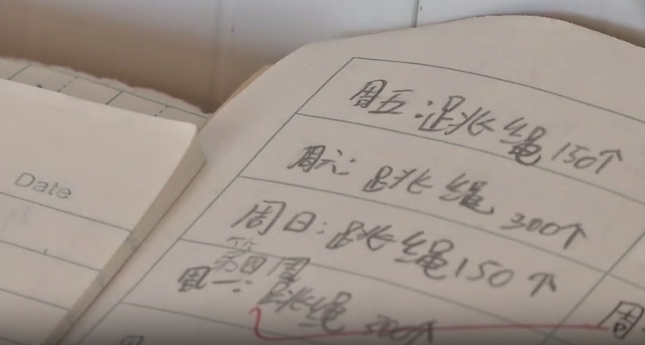 Date
周五:跳绳150个
周六:跳绳300个
周日:跳绳150个
第四周
周一:跳绳300个
周
周